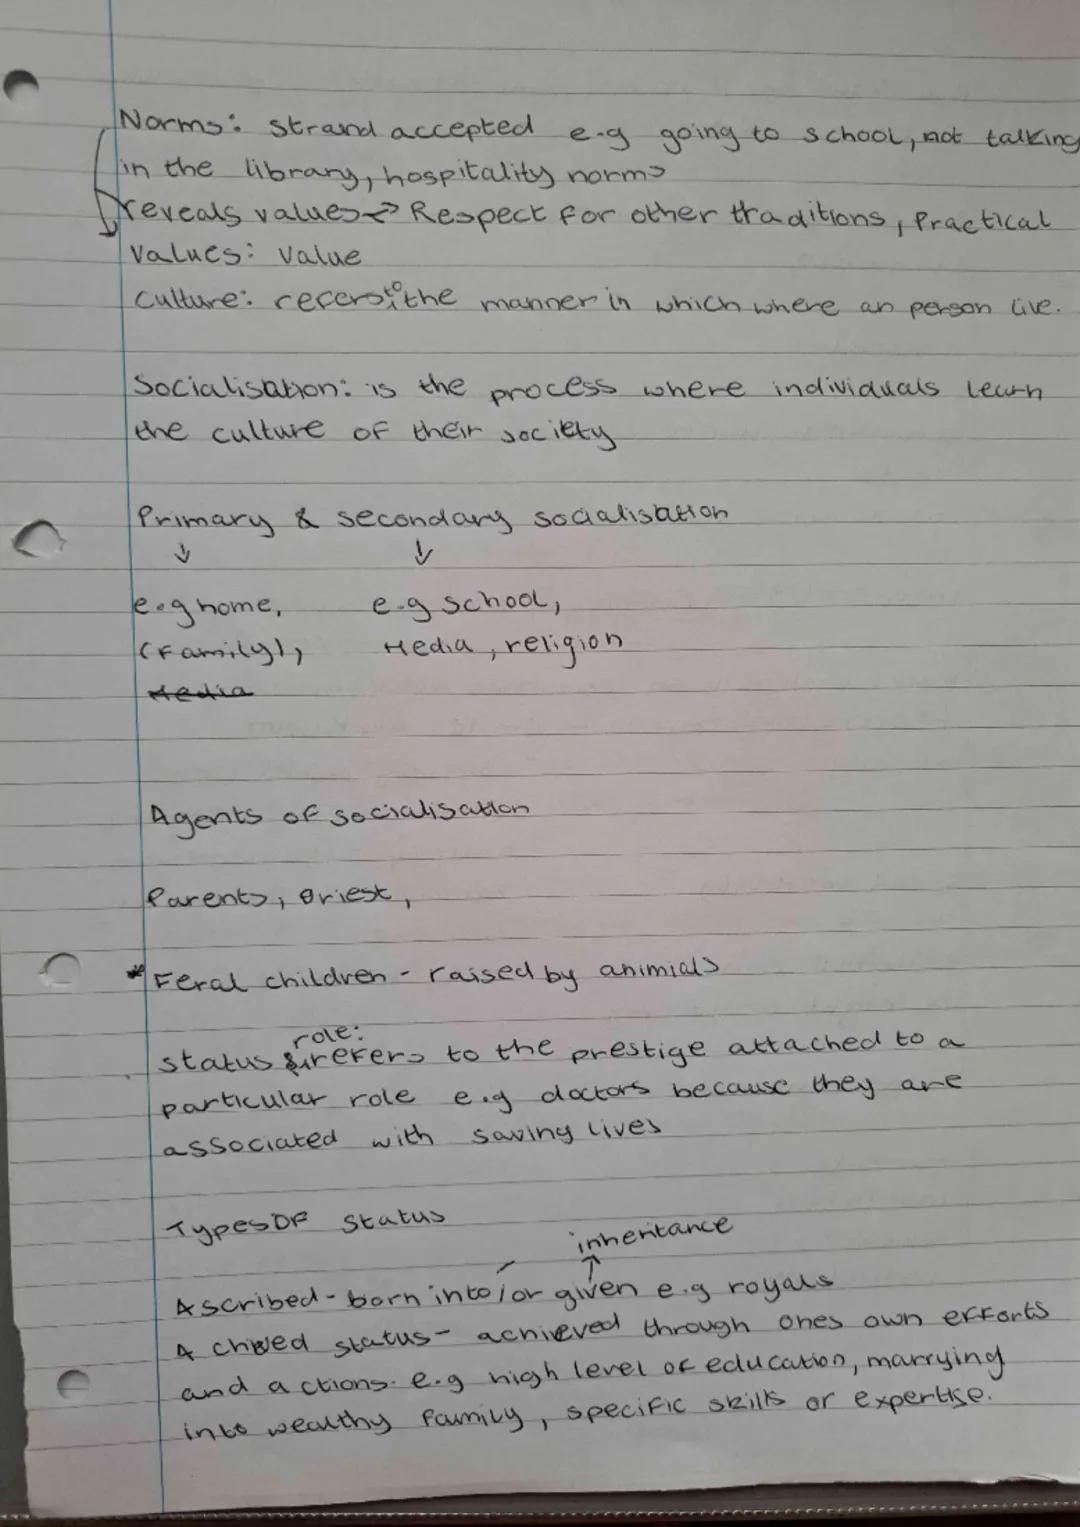 Norms: strand accepted e.g going to school, not talking
in the library, hospitality norms
reveals values → Respect for other traditions, Practical
Values: value
Culture: recers to the manner in which where an person live.
Socialisation: is the process where individuals learn
the culture of their society
Primary & secondary socialisation
↓ ↓
e.g home, e.g school,
(Family), Media, religion
Media
Agents of socialisation
Parents, Priest,
* Feral children - raised by animials
role:
status & refers to the prestige attached to a
particular role e.g doctors because they are
associated with saving lives
Types OF status
inheritance
Ascribed - born into / or given e.g royals
Achived status - achieved through ones own efforts
and actions. e.g high level of education, marrying
into wealthy family, specific skills or expertise.